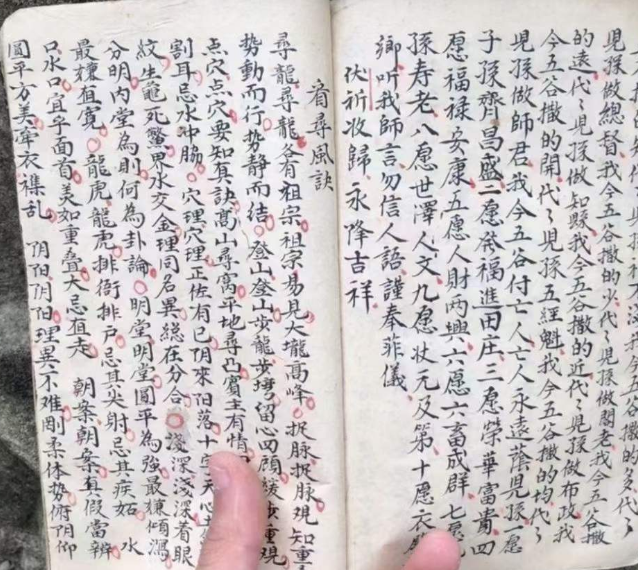 儿孫做總督我今五谷撒的少代々児孫做閣老我今五谷撒
的遠代々児孫做知縣我今五谷撒的近代々児孫做布政我
今五谷撒的開代々児孫五經魁我今五谷撒的均代々
児孫做師君我今五谷付亡人亡人永遠蔭児孫一愿
子孫齊昌盛二愿發福進田庄三愿榮華富貴四
愿福禄安康五愿人財两興六愿六畜成群七愿
孫寿老八愿世澤人文九愿状元及第十愿衣
鄉听我師言勿信人語謹奉菲儀
伏祈收歸永降吉祥
看尋風訣
尋龍尋龍各有祖宗祖宗易見大壠高峰捉脉捉脉現知重
势動而行势静而结登山登山步龍步塆留心四顧緩步重現
点穴点穴要知真訣高山尋窩平地尋凸賓主有情
割耳忌水冲肠穴理穴理正佐有已阴來阳落十字天心
紋生龟死鱉界水交金理同名異總在分合淺深淺深着眼
分明内堂為則何為卦論明堂明堂圓平為強最嫌傾瀉
最嫌直寛龍虎龍虎排衙排户忌其尖射忌其疾妬水
口水口宜乎面首美如重叠大忌直走朝案朝案真假當辨
圓平方美牵衣襍乱阴阳阴阳理異不难剛柔体势俯阴仰